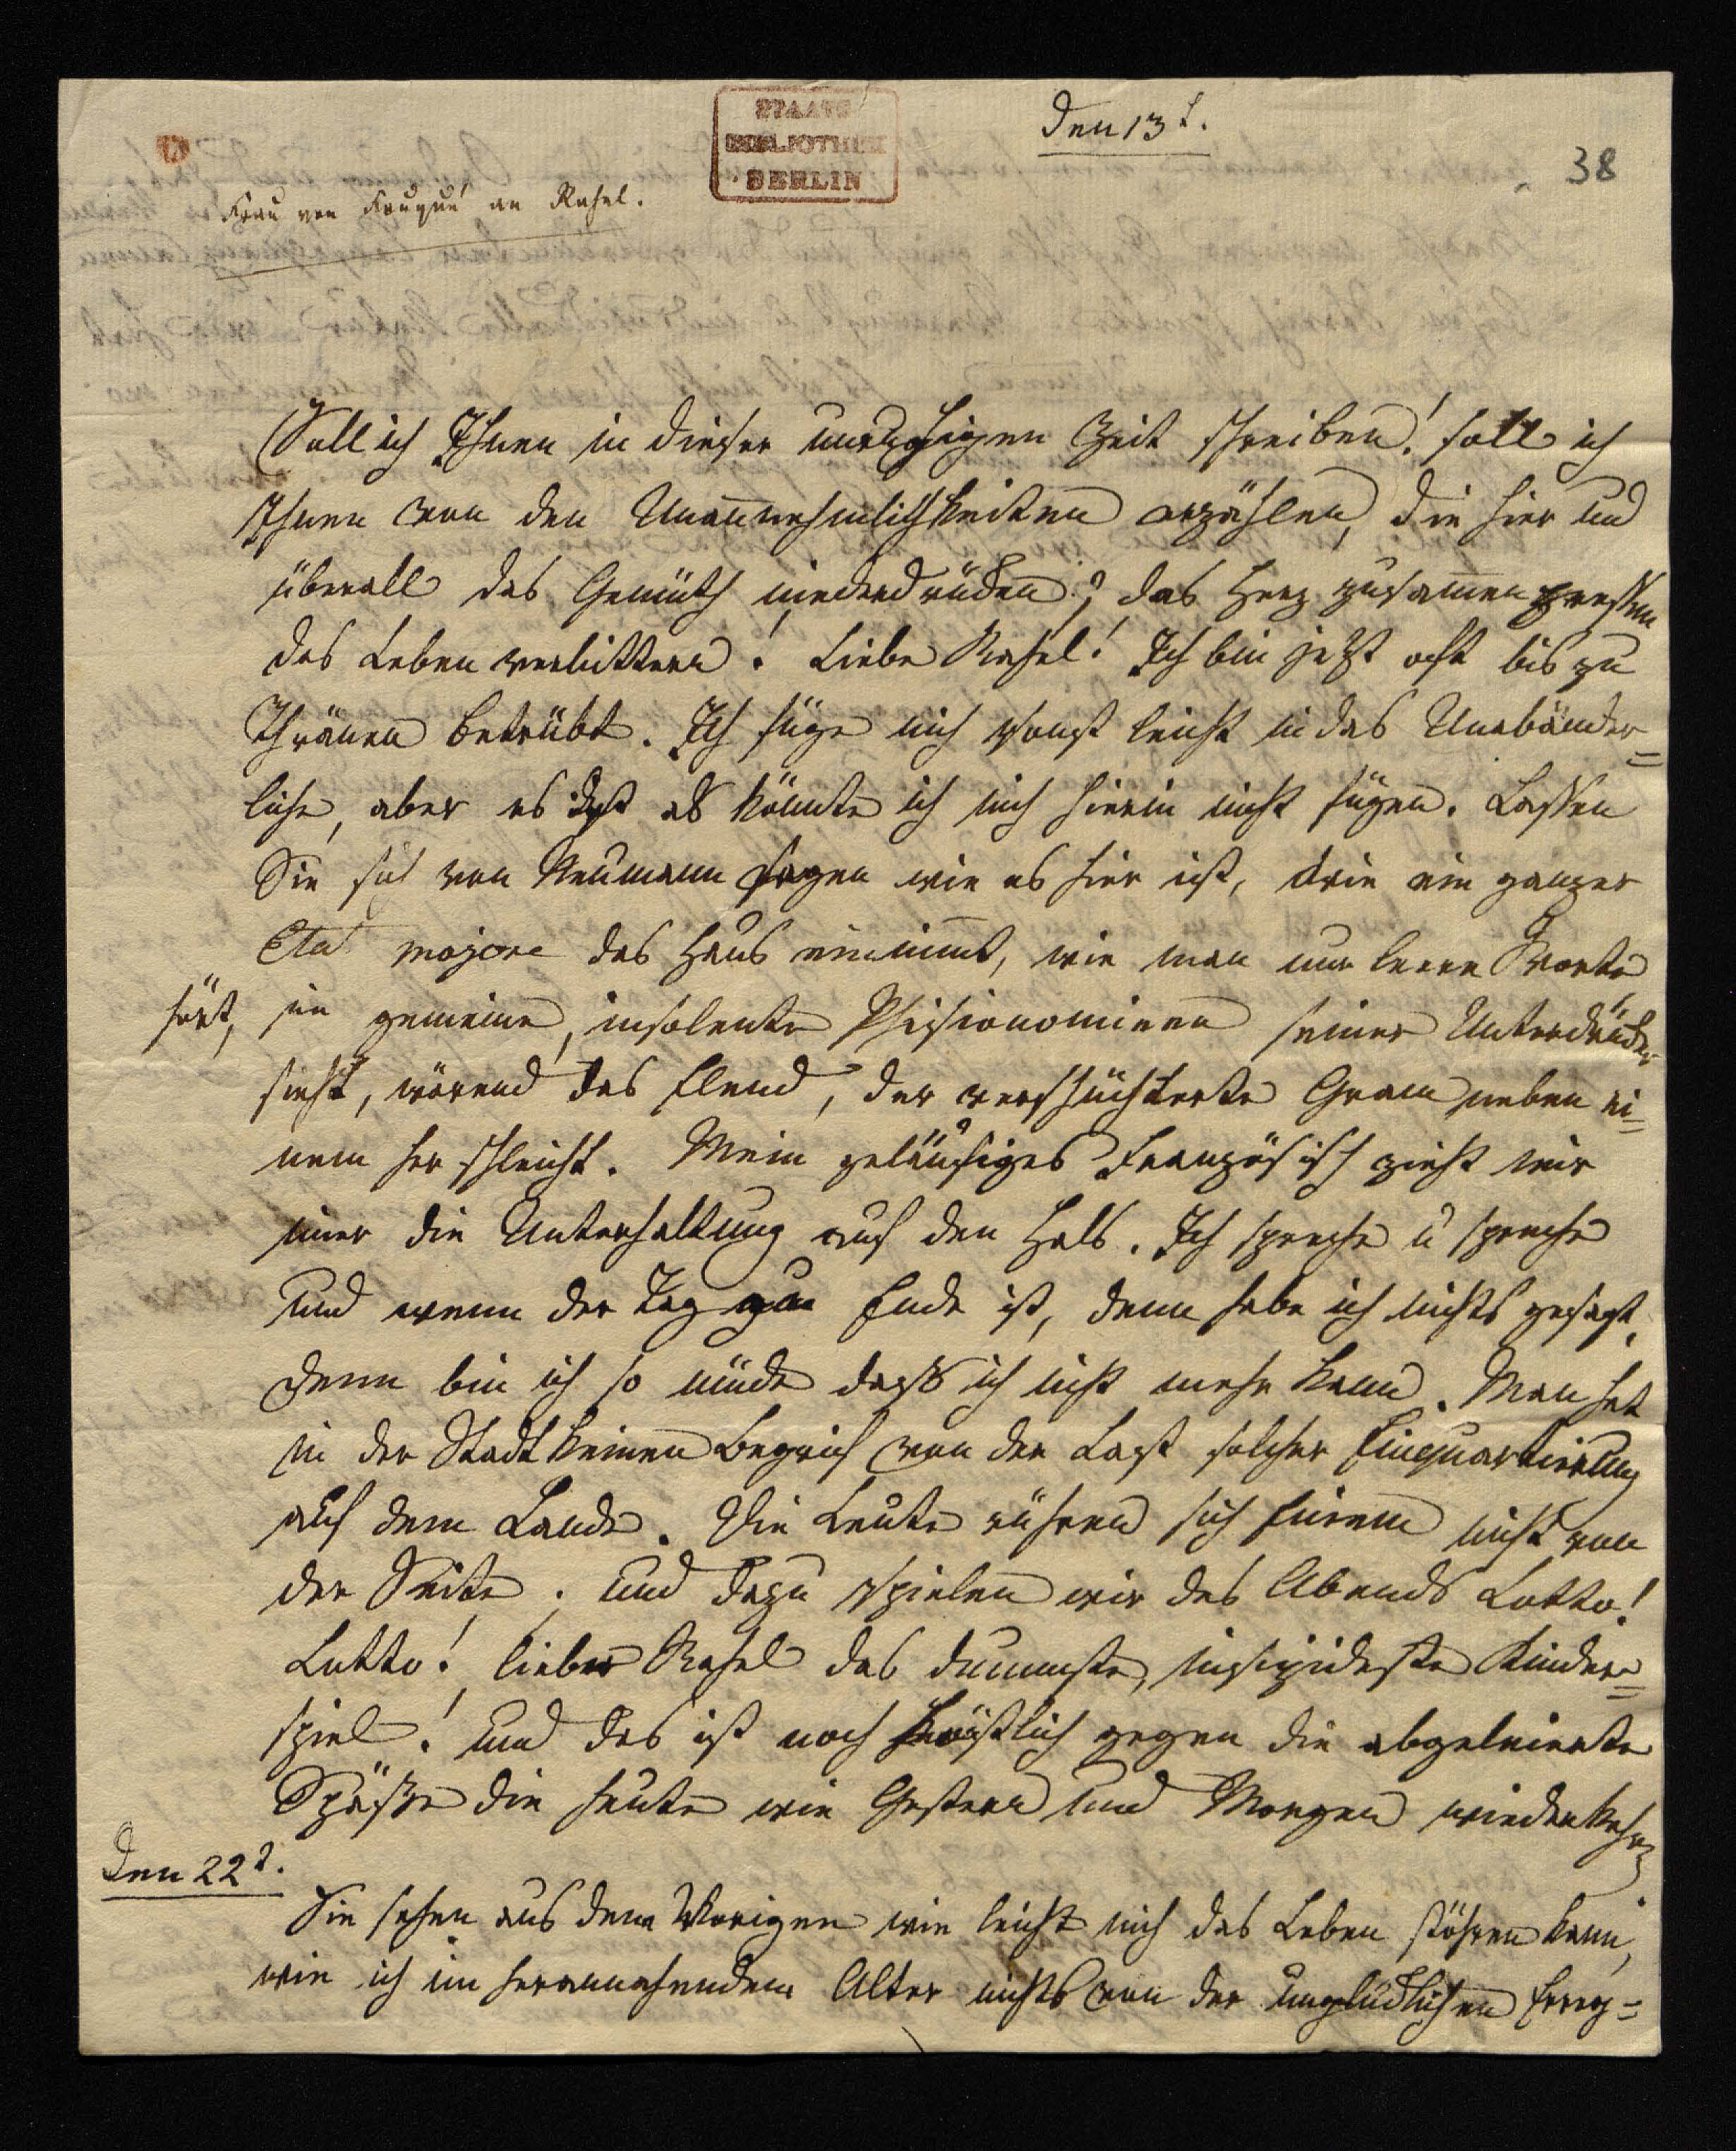 STAATS
BIBLIOTHEK
BERLIN
den 13t.
38
Frau von Fouqué an Rahel.
Soll ich Ihnen in dieser unruhigen Zeit schreiben! soll ich
Ihnen von den Unannehmlichkeiten erzählen, die hier und
überall das Gemüth niederdrücken? das Herz zusamen pressen
das Leben verbittern! Liebe Rahel! Ich bin jetzt oft bis zu
Thränen betrübt. Ich füge mich sonst leicht in das Unabänder=
liche, aber es ist als könnte ich mich hierin nicht fügen. Lassen
Sie sich von Neumann sagen wie es hier ist, wie ein ganzer
Etat majore das Haus einnimt, wie man nur leere Worte
hört, in gemeine, insolente Phisionomieen seiner Unterdrücker
sieht, wärend das Elend, der verschüchterte Gram neben ei=
nem her schleicht. Mein geläufiges Französisch zieht mir
imer die Unterhaltung auf den Hals. Ich spreche u spreche
und wenn der Tag zu Ende ist, denn habe ich nichts gesagt,
denn bin ich so müde dass ich nicht mehr kann. Man hat
in der Stadt keinen Begriff von der Last solcher Einquartierung
auf dem Lande. Die Leute rühren sich Einem nicht von
der Seite. und dazu spielen wir des Abends Lotto!
Lotto! liebe Rahel das dummste, insipideste Kinder=
spiel! und das ist noch köstlich gegen die abgeleierte
Späße die heute wie Gestern und Morgen wiederkehren
den 22t.
Sie sehen aus dem Vorigen wie leicht mich das Leben stöhren kann,
wie ich im herannahendem Alter nichts von der unglücklichen Erreg=